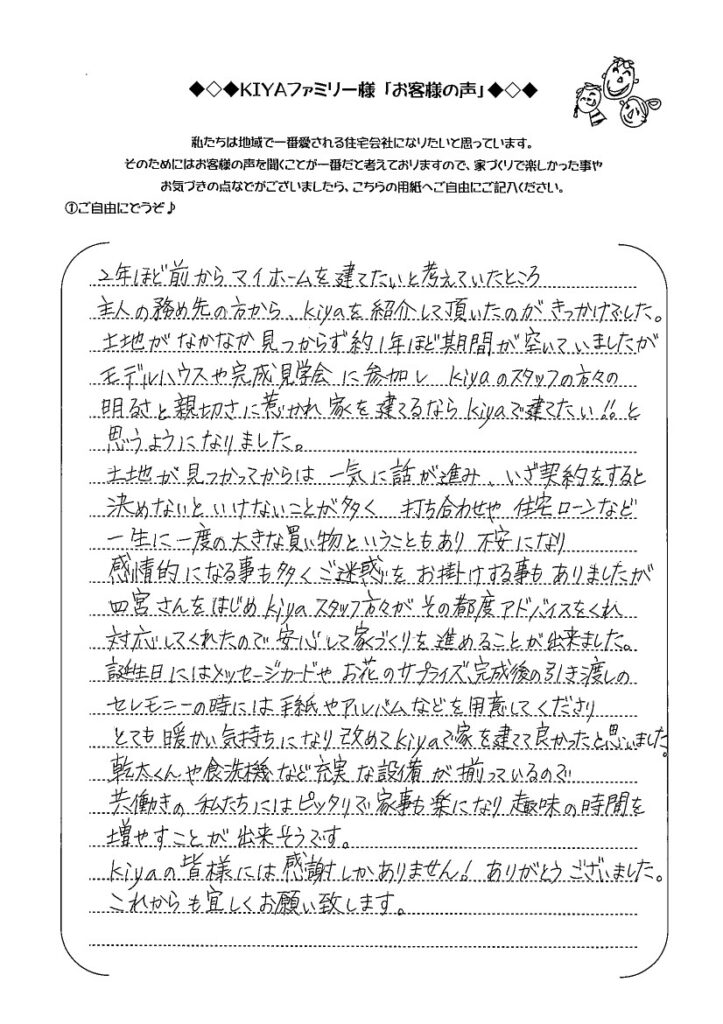 ◆◇◆KIYAファミリー様「お客様の声」◆◇◆
私たちは地域で一番愛される住宅会社になりたいと思っています。
そのためにはお客様の声を聞くことが一番だと考えておりますので、家づくりで楽しかった事や
お気づきの点などがございましたら、こちらの用紙へご自由にご記入ください。
①ご自由にどうぞ♪
2年ほど前からマイホームを建てたいと考えていたところ
主人の務め先の方から、kiyaを紹介して頂いたのがきっかけでした。
土地がなかなか見つからず約1年ほど期間が空いていましたが
モデルハウスや完成見学会に参加し kiyaのスタッフの方々の
明るさと親切さに惹かれ家を建てるならkiyaで建てたい!!と
思うようになりました。
土地が見つかってからは一気に話が進み、いざ契約をすると
決めないといけないことが多く 打ち合わせや住宅ローンなど
一生に一度の大きな買い物ということもあり 不安になり
感情的になる事も多くご迷惑をお掛けする事もありましたが
四宮さんをはじめkiyaスタッフ方々がその都度アドバイスをくれ
対応してくれたので安心して家づくりを進めることが出来ました。
誕生日にはメッセージカードやお花のサプライズ、完成後の引き渡しの
セレモニーの時には手紙やアルバムなどを用意してくださり
とても暖かい気持ちになり改めてkiyaで家を建てて良かったと思いました。
乾太くんや食洗機など充実な設備が揃っているので
共働きの私たちにはピッタリで家事も楽になり趣味の時間を
増やすことが出来そうです。
kiyaの皆様には感謝しかありません!ありがとうございました。
これからも宜しくお願い致します。